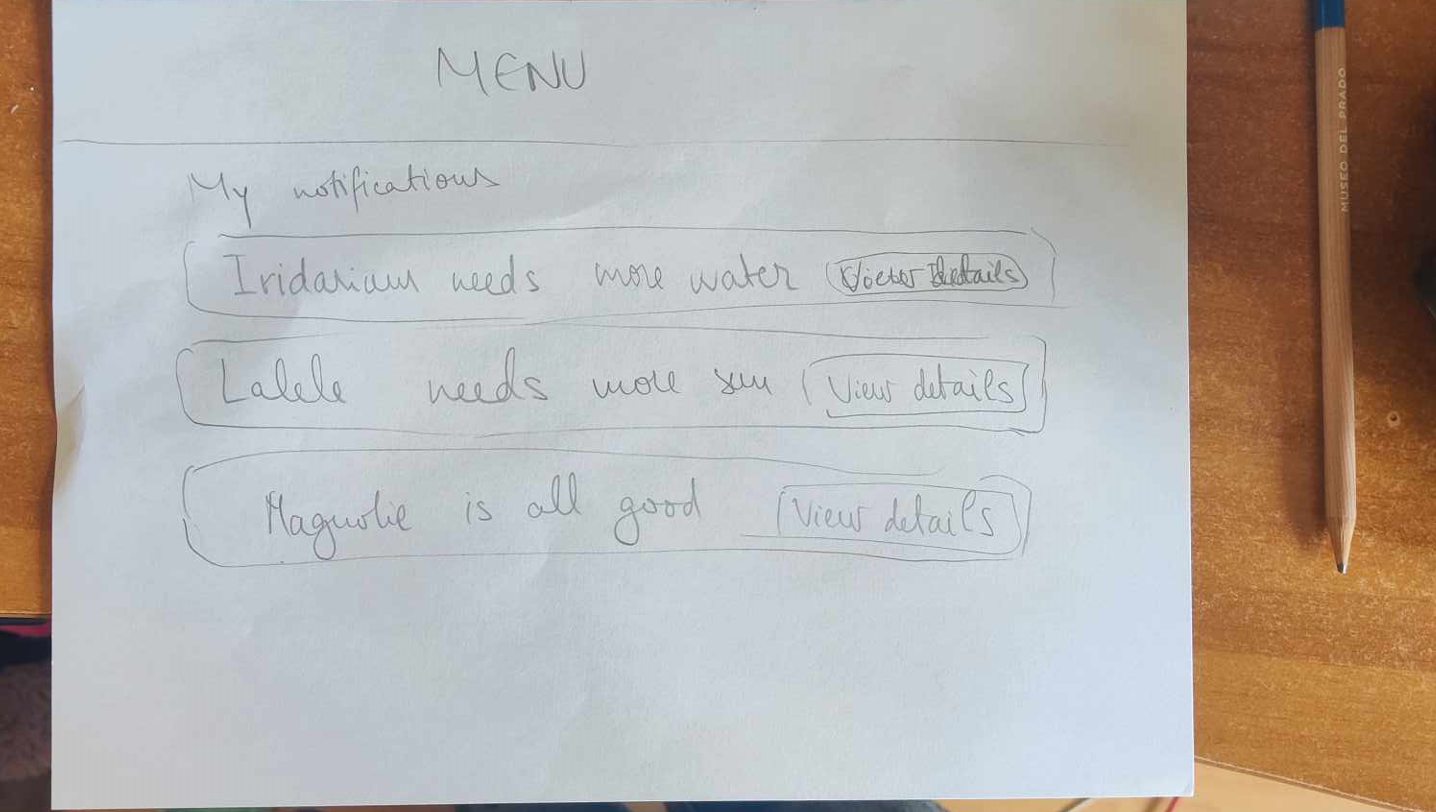 MENU
My notifications
Iridarium needs more water
Lalele needs more sun View details
Magnolie is all good View details
MUSEO DEL PRADO